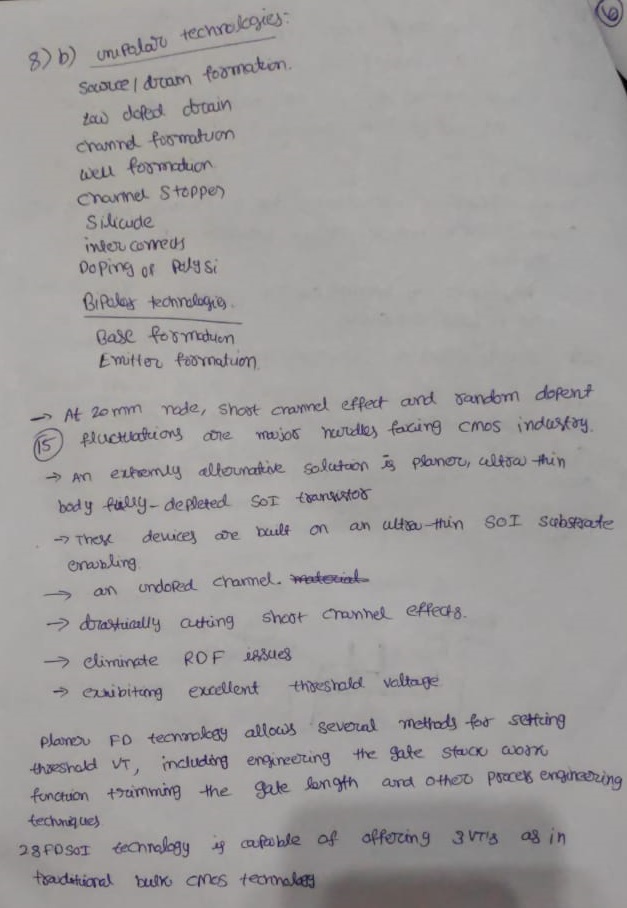 6
8) b) unipolar technologies:
Source / drain formation.
Low doped drain
Channel formation
Well formation
Channel Stopper
Silicide
inter connects
Doping of Poly Si
Bipolar technologies.
Base formation
Emitter formation.
→ At 20 mm node, short channel effect and random dopent
15 fluctuations are major hurdles facing CMOS industry.
→ An extremly alternative solution is planer, ultra thin
body fully-depleted SOI transistor
→ These devices are built on an ultra-thin SOI substrate
enabling.
→ an undoped channel. material
→ drastically cutting short channel effects.
→ eliminate RDF issues
→ exhibiting excellent threshold voltage
planer FD technology allows several methods for setting
threshold VT, including engineering the gate stack work
function trimming the gate length and other process engineering
techniques
28FDSOI technology is capable of offering 3 VT's as in
traditional bulk CMOS technology